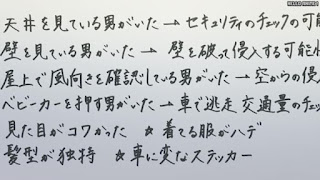 天井を見ている男がいた→セキュリティのチェックの可能
壁を見ている男がいた → 壁を破って侵入する可能性
屋上で風向きを確認している男がいた→空からの侵入
ベビーカーを押す男がいた→車で逃走 交通量のチェッ
見た目がコワかった ☆着てる服がハデ
髪型が独特 ☆車に変なステッカー